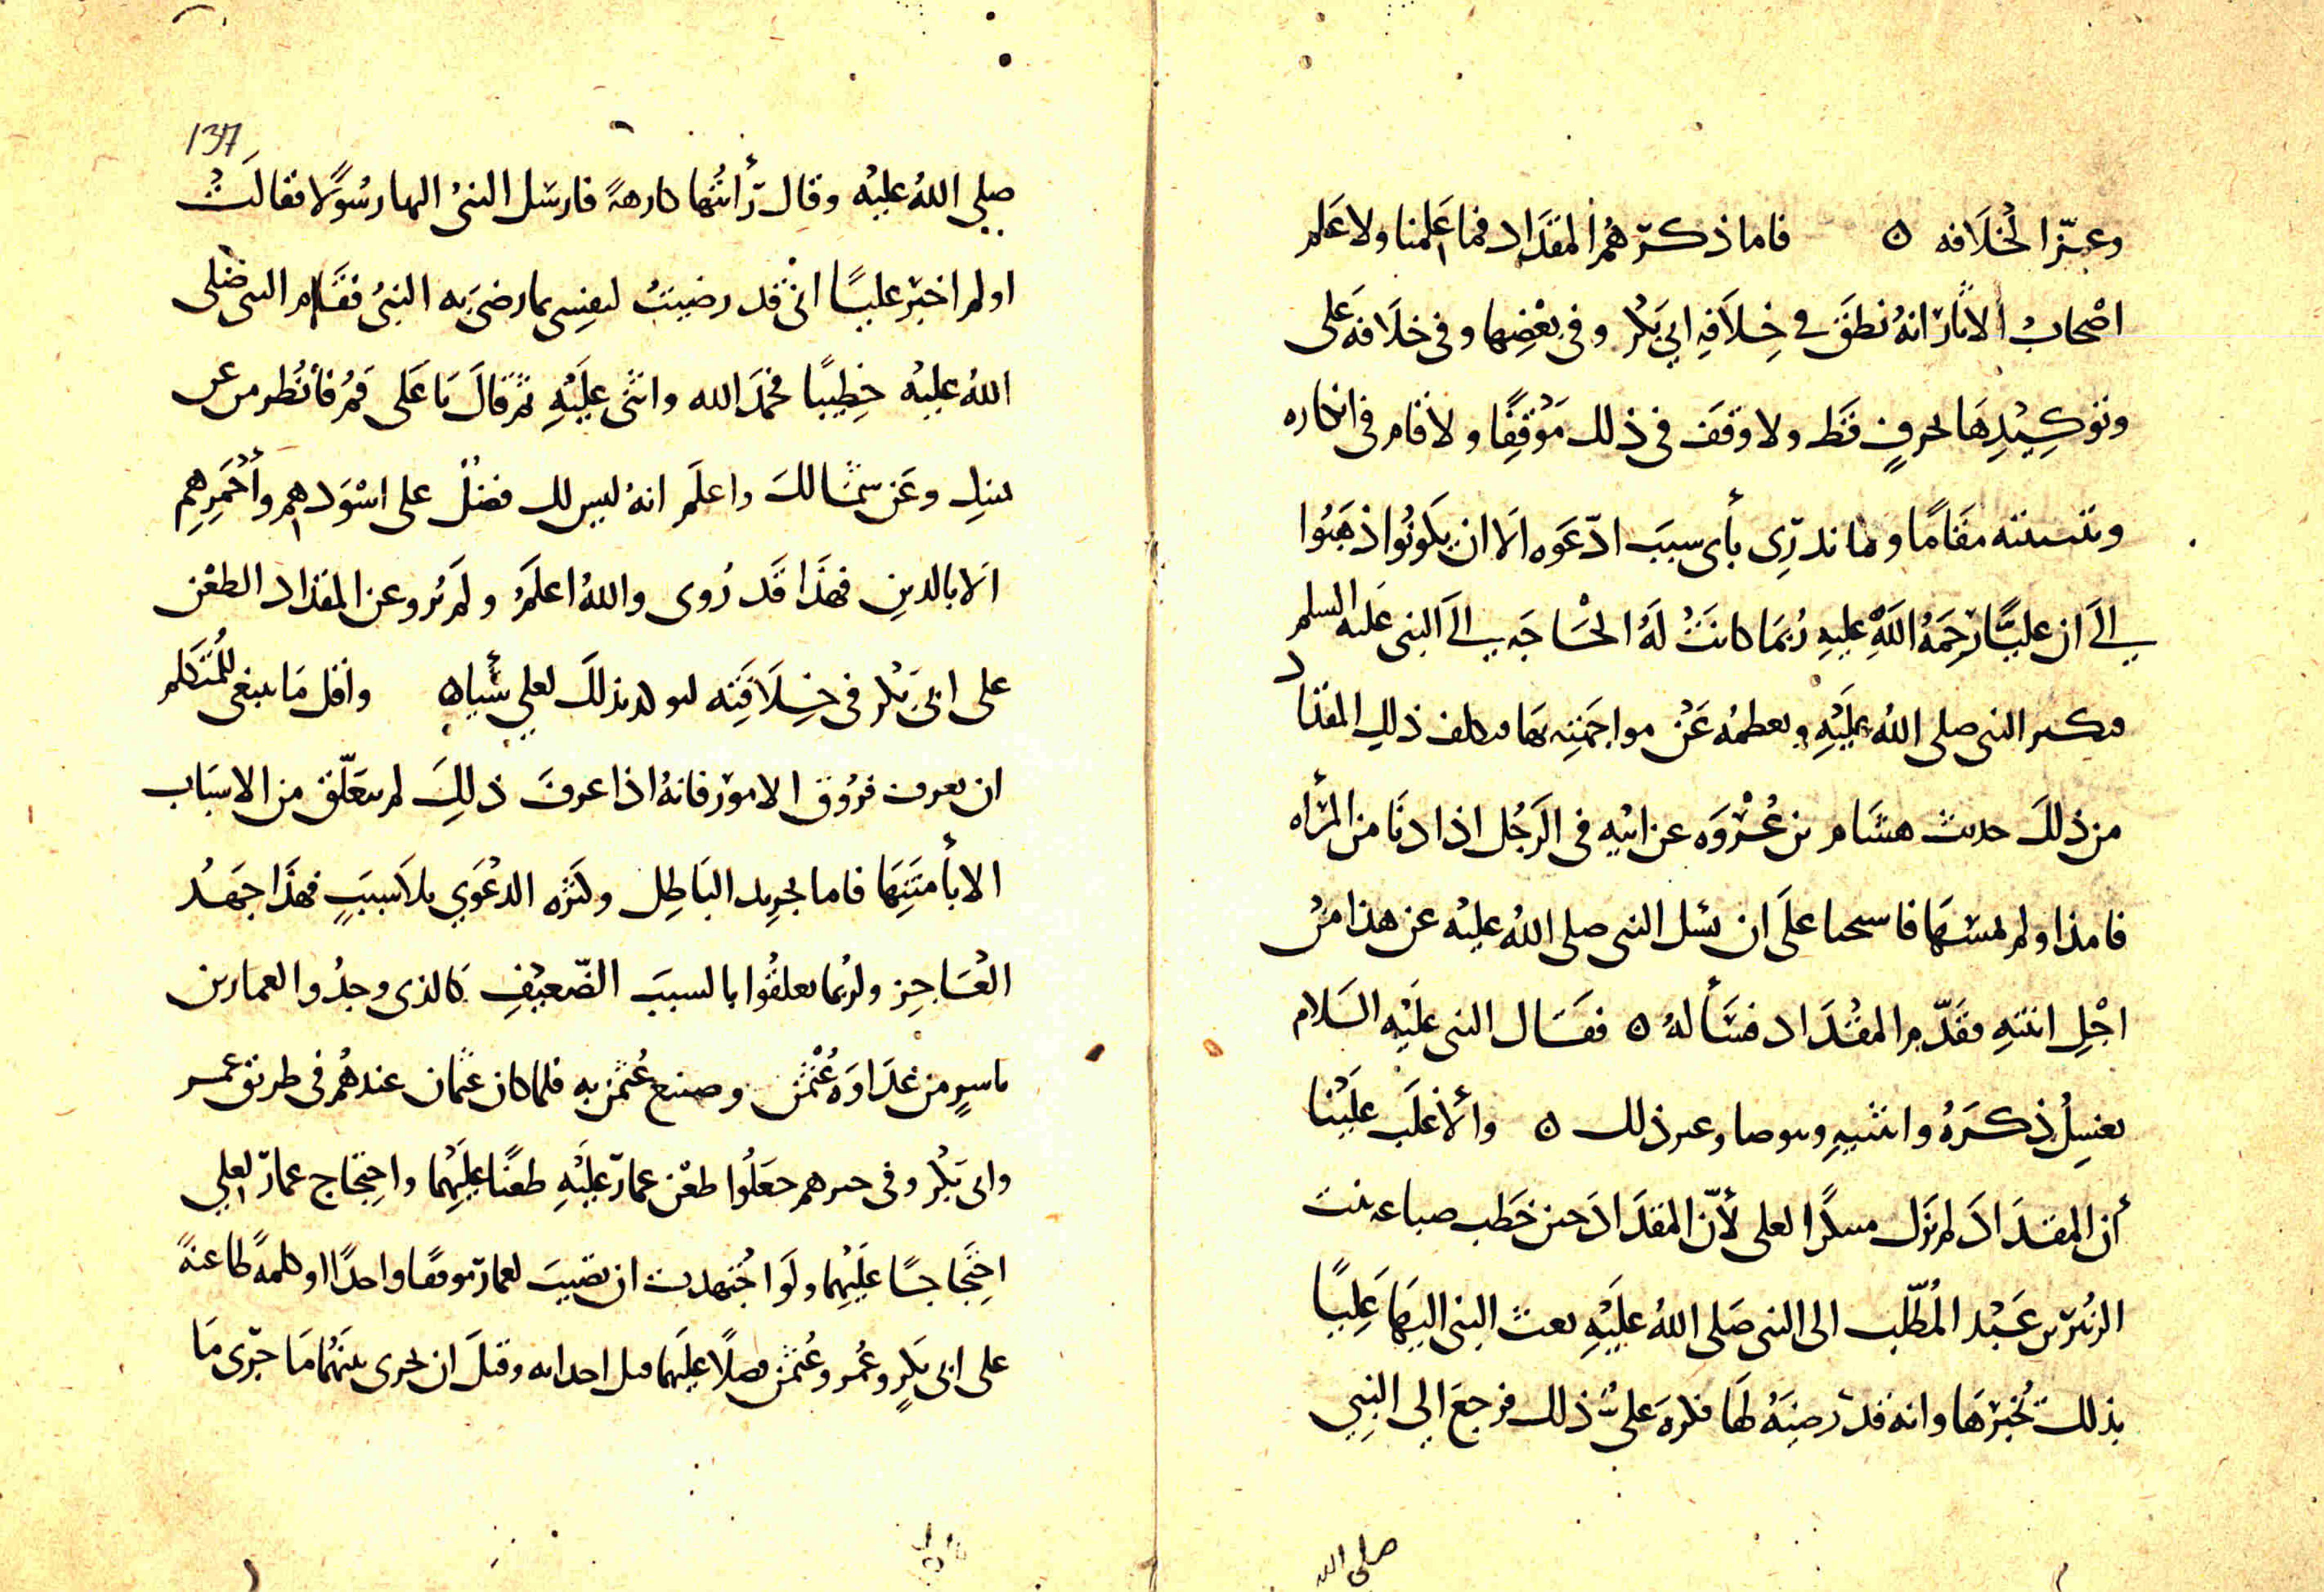 وعبّر الخلافه ه فاما ذكرهم المقداد فما علمنا ولا علم
اصْحابُ الاثار انهُ نطقَ في خِلاَفهِ ابي بَكْر وفى بعْضِها وفى خلافه على
وتوكِيْدِهَا بحرفٍ قَط ولا وقفَ فى ذلك مَوْقِفًا ولا قام فى انكاره
وتثبيته مقَامًا وما ندرِى بأى سببَ ادّعَوه الا ان يكونُوا ذهَبُوا
الى ان عليًّا رحمَهُ اللهِ عليهِ رُبمَا كانتْ لَهُ الحَاجَه الى النبى عَليه السلم
فيكبر النبى صلى اللهُ عليَهِ ويعظمُه عَنْ مواجَهتِه بهَا فيكلف ذلك المقداد
من ذلكَ حديث هشام بن عُرْوَه عن ابيْهِ فى الرَجُل اذا دنَا من المرأه
فامذا ولم يمسّهَا فاستحيا علَى ان يسْل النبى صلى اللهُ عليْه عن هذا منْ
اجْلِ ابنتهِ فقَدّم المقْدَاد فسَأ لهُ ه فقَال النبى عَليْه السَلام
يغسِلُ ذكرَهُ وانثييهِ ويتوضا وعبر ذلك ه والأغلَب علَيْنا
أن المقدَادَ لم يزَل مسدًا لعلى لأنّ المقدَادَ حين خَطب ضباعه بنت
الزبَير بن عَبْد المُطّلب الى النبى صَلى اللهُ عليَهِ بعث النبى اليهَا عَلِيًا
بذلك تُخبرهَا وانه قد رضيَهُ لهَا فكرهَ علىٌّ ذلك فرجعَ الى النبِي
صلى الله
137
صلى اللهُ عليْه وقال رَأيتُها كارهةً فارسَل النبىُ اليها رسُوْلا فقالَتْ
اولم اخبِر عليًا انى قد رضيتُ لنفسِى بما رضىَ به النبىُ فقَام النبى صَلى
اللهُ عليْه خطِيبًا فحمَد الله واثنى علَيْهِ ثم قالَ يَا عَلى قمُ فأنْظر من عن
يمينك وعَن شمَالكَ واعلَم انهُ ليس لك فضْلٌ على اسْوَدهم وأحْمَرِهِم
الا بالدين فهذَا قَد رُوى واللهُ اعلَمُ ولَم يُرو عن المقداد الطعْن
على ابى بَكْر فى خِلاَفتِه ليولد بذلكَ لعلى شيأ ه وأقل مَا ينبغى للمُتكلم
ان يعرف فرُوْق الامور فانهُ اذا عرفَ ذلِكَ لم يتعَلّق من الاسبَاب
الا بأمتَنِهَا فاما بحرِيد البَاطِل وكثره الدعْوَي بلا سببٍ فهذَا جَهدُ
العَاجِز ولربُما تعلقُوا بالسببَ الضّعيْفِ كالذى وجدُوا لعمار بن
ياسرٍ من عدَاوَة عُثْمن وصنيع عُثمن به فلما كان عثمان عندهُم فى طريق عمر
وابى بَكْر وفى حيزهم جعَلُوا طعْن عمارٍ عليَهِ طعْنًا عليَهما واحتِجَاج عمارٍ لعلي
احتِجَاجًا علَيْهما ولَو اجْتهدت ان تصيبَ لعمار موقفًا واحدًا او كلمةً طاعنةً
على ابى بَكرٍ وعُمر وعُثمن فضلًا عليَهما قبل احداثه وقبلَ ان يجرى بينَهُما مَا جرَى مَا